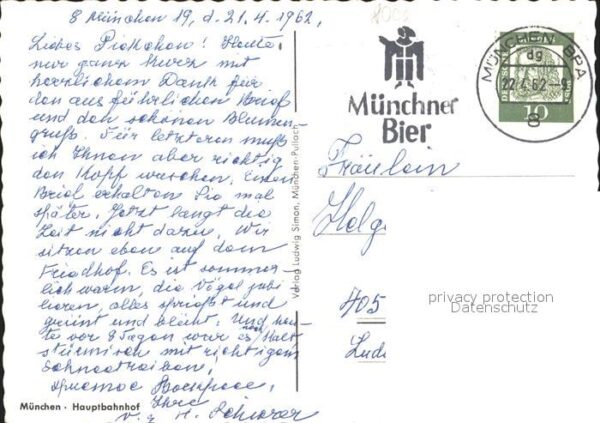 8 München 19, d. 21.4.1962,
Liebes Pickchen! Heute
nur ganz kurz mit
herzlichem Dank für
den ausführlichen Brief
und den schönen Blumen-
gruß. Für letzteren muß
ich Ihnen aber richtig
den Kopf waschen. Einen
Brief erhalten Sie mal
später. Jetzt langt die
Zeit nicht dazu. Wir
sitzen eben auf dem
Friedhof. Es ist sommer-
lich warm, die Vögel jubi
lieren, alles sprießt und
grünt und blüht. Und heu-
te vor 8 Tagen war es noch kalt
stürmisch mit richtigem
Schneetreiben,
Ihre
München · Hauptbahnhof
Verlag Ludwig Simon, München-Pullach
Münchner
Bier
MÜNCHEN BPA
dg
22.4.62
8
10
Fräulein
Helg
405
Lud
privacy protection
Datenschutz